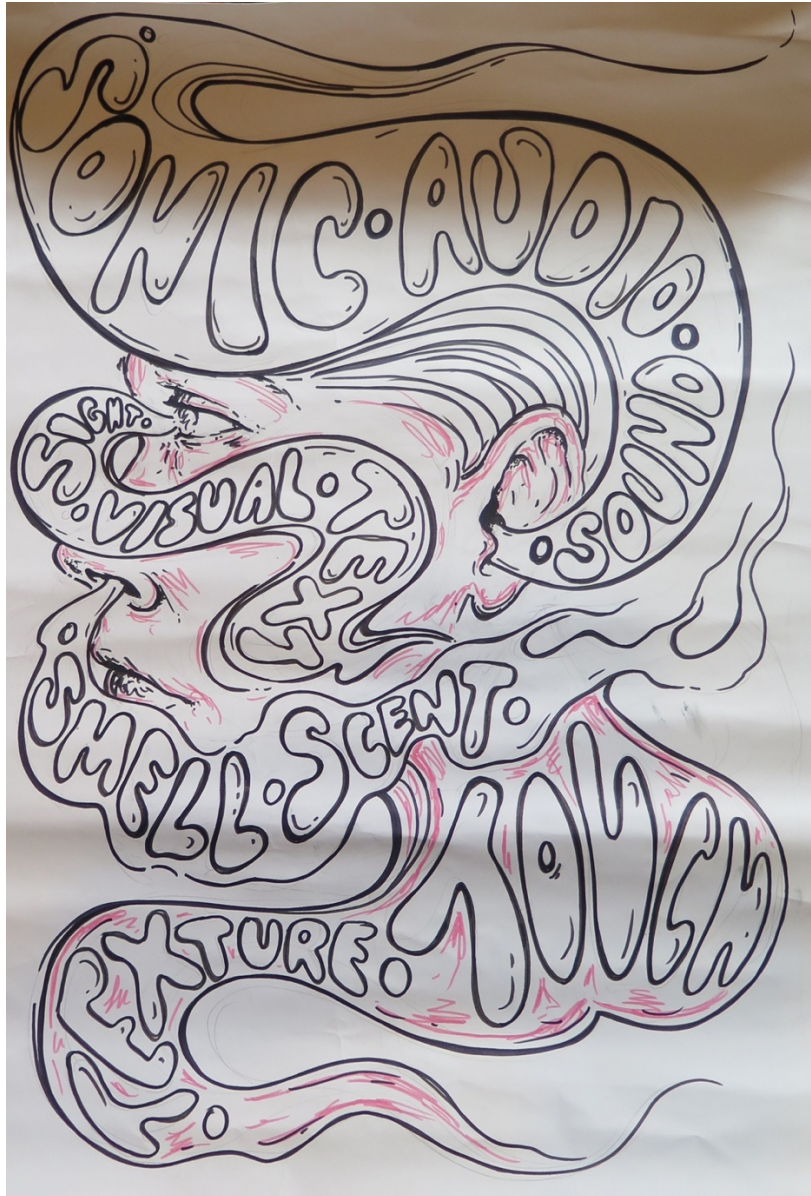 SONIC•AUDIO•SOUND•
SIGHT•VISUAL•TEXT
SMELL•SCENT•
TOUCH
•TEXTURE•